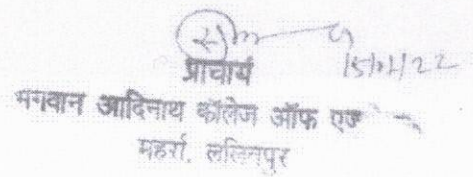 15/01/22
प्राचार्य
भगवान आदिनाथ कॉलेज ऑफ एजू
महर्रा, ललितपुर